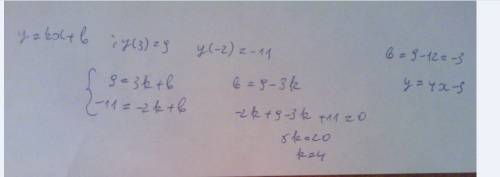 y=kx+b ; y(3)=9 y(-2)=-11
{ 9=3k+b
-11=-2k+b
b=9-3k
-2k+9-3k+11=0
5k=20
k=4
b=9-12=-3
y=4x-3